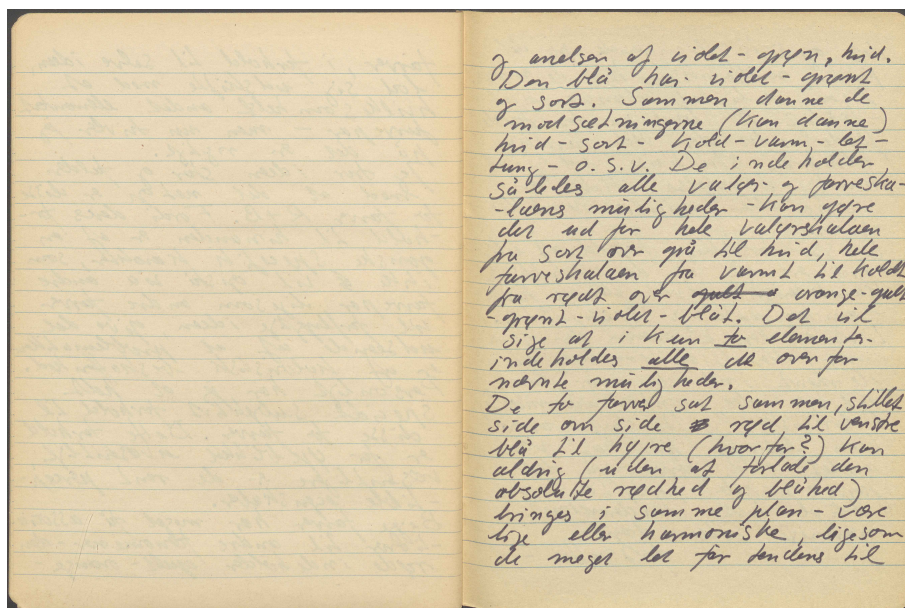 og anelsen af violet-grøn, hvid.
Den blå har violet-grønt
og sort. Sammen danne de
modsætningerne (kan danne)
hvid-sort-kold-varm-let-
tung-o.s.v. De indeholder
således alle valør- og farveska-
-laens muligheder-kan gøre
det ud for hele valørskalaen
fra sort over grå til hvid, hele
farveskalaen fra varmt til koldt
fra rødt over gult orange-gult
-grønt-violet-blåt. Det vil
sige at i kun to elementer
indeholdes alle de oven for
nævnte muligheder.
De to farver sat sammen, stillet
side om side rød til venstre
blå til højre (hvorfor?) kan
aldrig (uden at forlade den
absolutte rødhed og blåhed)
bringes i samme plan-være
lige eller harmoniske, ligesom
de meget let får tendens til